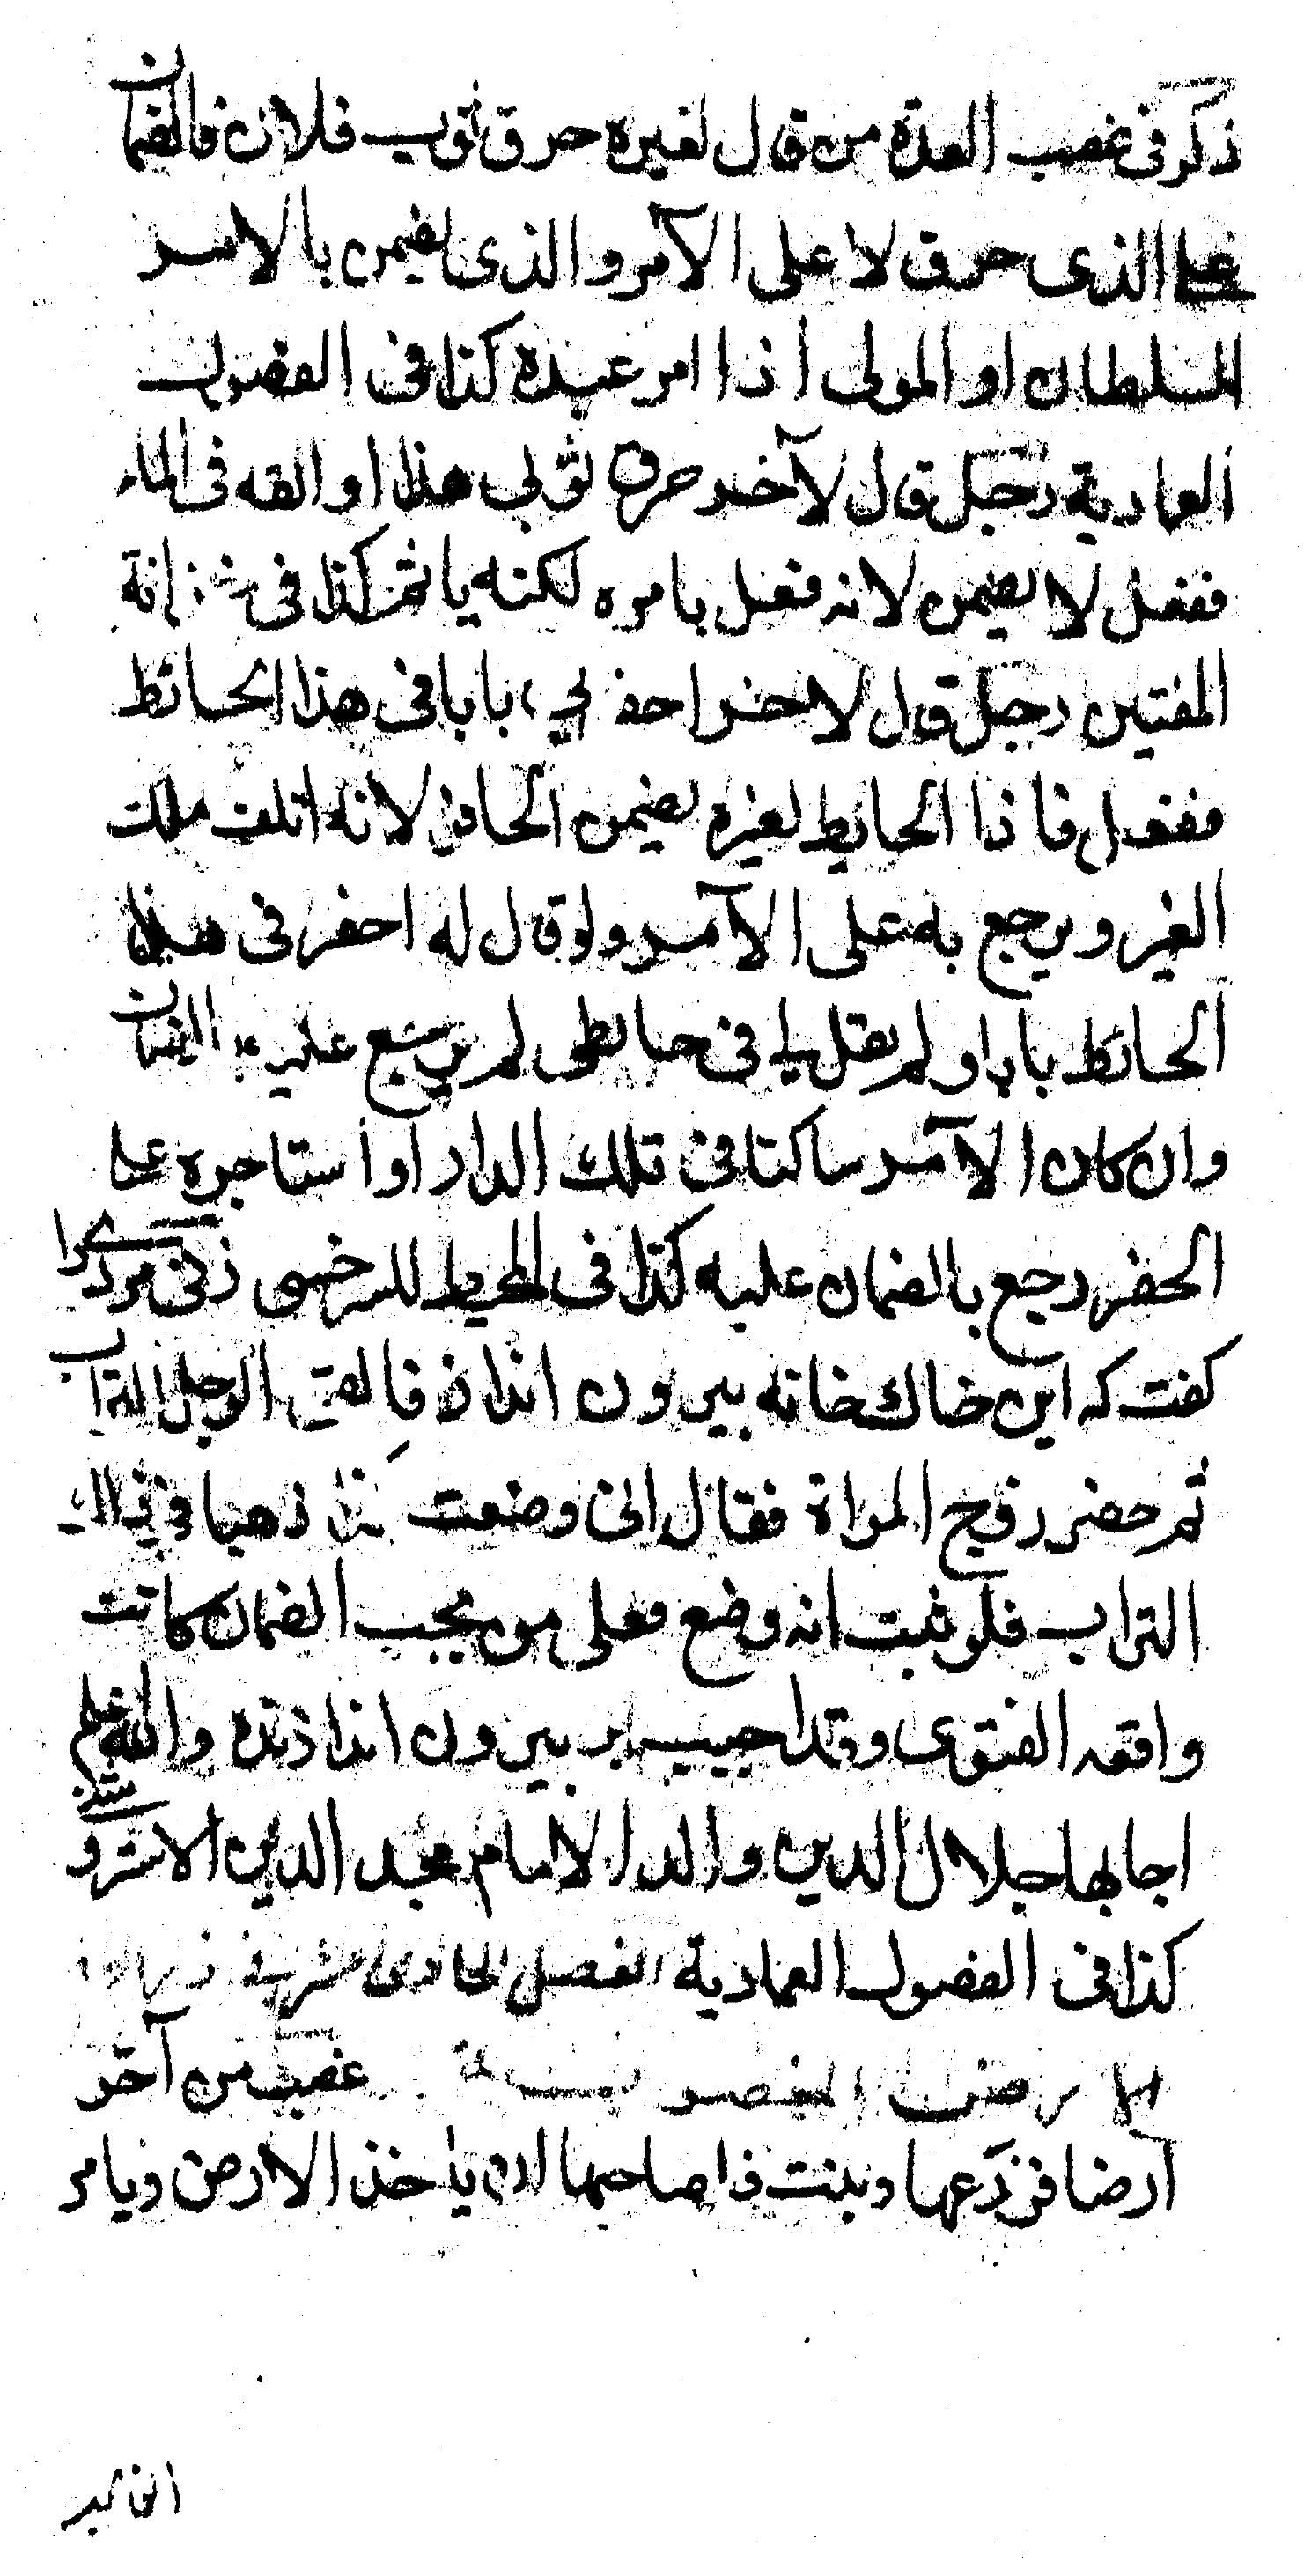 ذكر في غصب العدة من قال لغيره حرق ثوب فلان فالضمان
على الذى حرق لا على الآمر والذى يضمن بالامر
السلطان او المولى اذا امر عبده كذا في الفصول
العمادية رجل قال لآخر حرق ثوبى هذا او القه فى الماء
ففعل لا يضمن لانه فعل بامره لكنه ياثم كذا فى خزانة
المفتين رجل قال لاخر احفر لى بابا فى هذا الحائط
ففعل فاذا الحايط لغيره يضمن الحافر لانه اتلف ملك
الغير ويرجع به على الآمر ولو قال له احفر فى هذا
الحائط بابا ولم يقل لى فى حايطى لم يرجع عليه الضمان
وان كان الآمر ساكنا فى تلك الدار او استاجره على
الحفر رجع بالضمان عليه كذا فى المحيط للسرخسى زنى مرد كرا
كفت كه اين خاك خانه بيرون انداز فالقى الرجل التراب
ثم حضر زوج المراة فقال انى وضعت كذا ذهبا فى
التراب فلو ثبت انه وضع فعلى من يجب الضمان كانت
واقعه الفتوى وقد اجيب بر بيرون اندازنده والله اعلم
اجابها جلال الدين والد الامام مجد الدين الاستروشنى
كذا فى الفصول العمادية الفصل الحادى عشر فى زراعة
الارض المغصوبة غصب من آخر
آرضا فزرعها ونبتت فلصاحبها ان ياخذ الارض ويامر